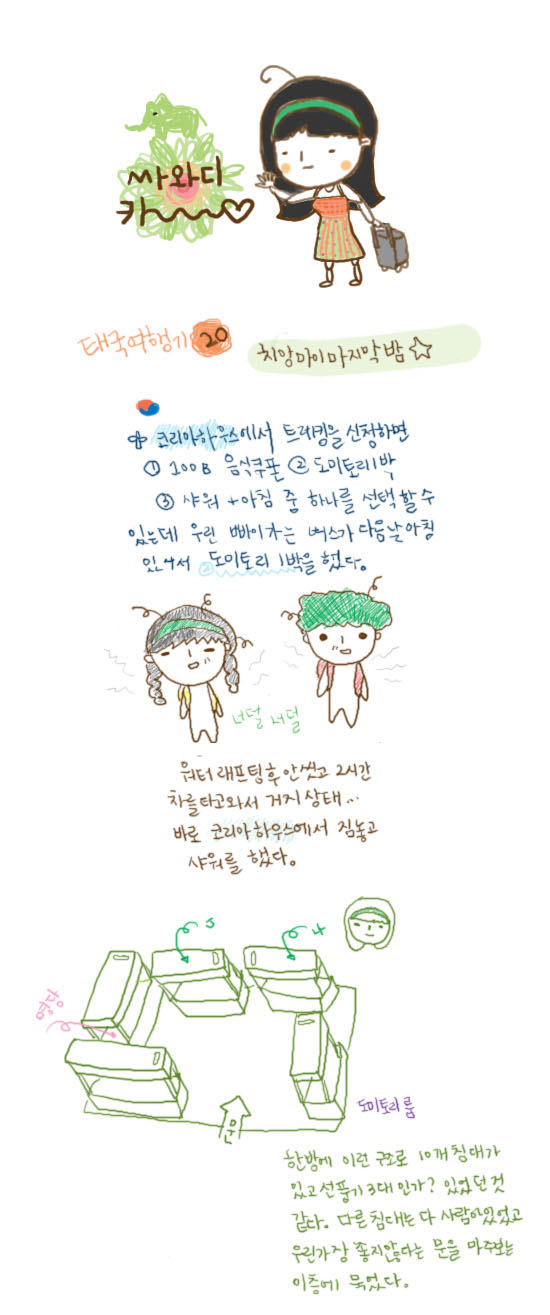 싸와디
카~~~♡
태국여행기 20
치앙마이 마지막 밤 ☆
코리아하우스에서 트레킹을 신청하면
① 100B 음식쿠폰 ② 도미토리 1박
③ 샤워 + 아침 중 하나를 선택할 수
있는데 우린 빠이가는 버스가 다음날 아침
있어서 ② 도미토리 1박을 했다.
너덜 너덜
워터 래프팅 후 안씻고 2시간
차를 타고와서 거지 상태...
바로 코리아하우스에서 짐놓고
샤워를 했다.
문
도미토리 룸
한방에 이런 구조로 10개 침대가
있고 선풍기 3대 인가? 있었던 것
같다. 다른 침대는 다 사람이 있었고
우린 가장 좋지않다는 문을 마주보는
이층에 묵었다.